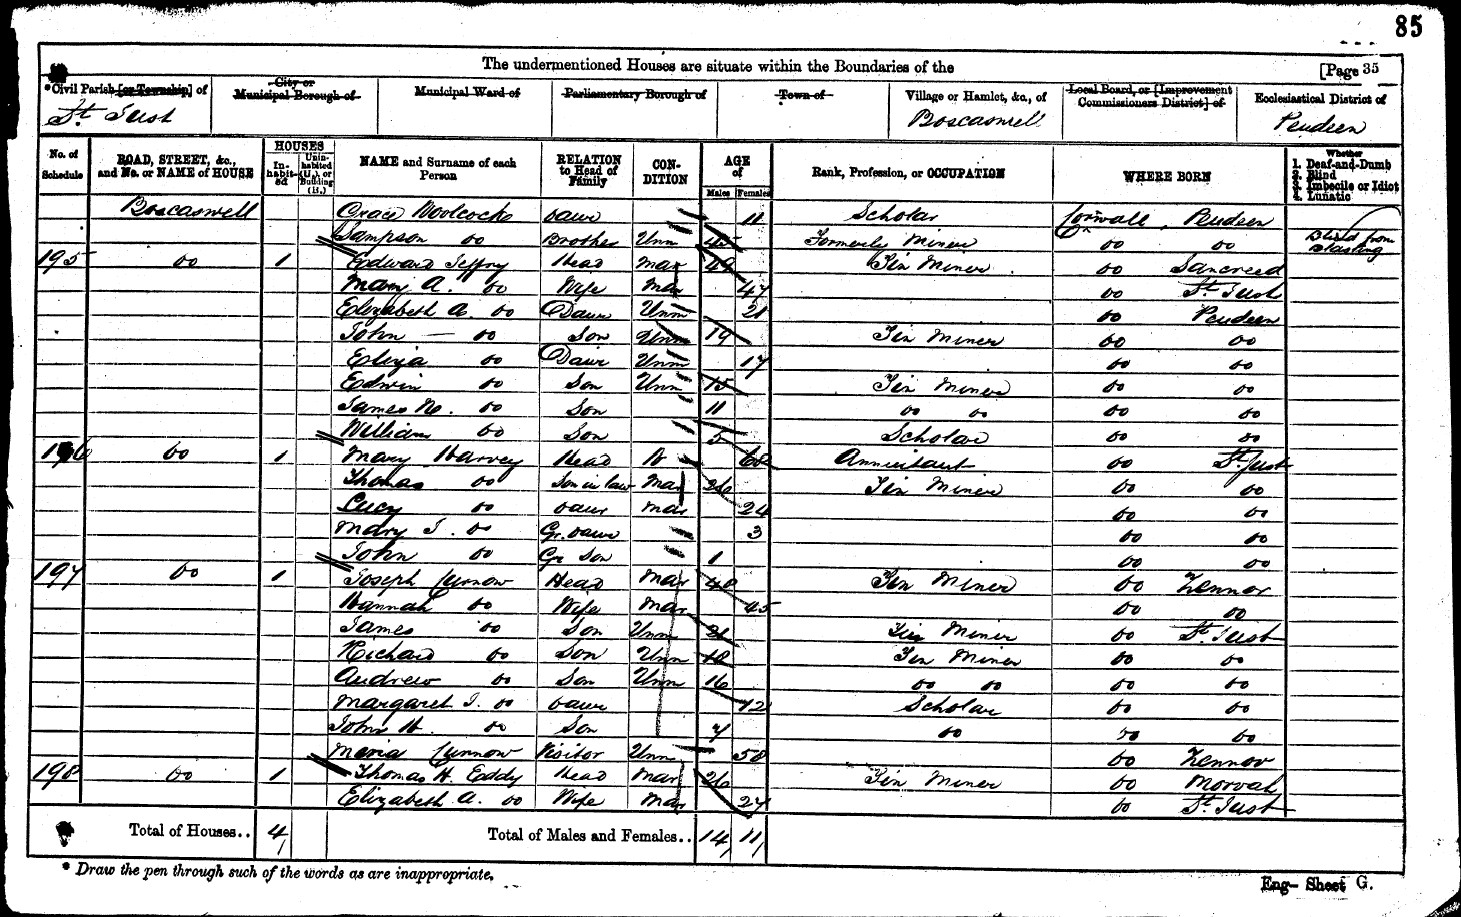 85
The undermentioned Houses are situate within the Boundaries of the [Page 35
*Civil Parish [or Township] of City or Municipal Borough of Municipal Ward of Parliamentary Borough of Town of Village or Hamlet, &c., of Local Board, or [Improvement Commissioners District] of Ecclesiastical District of
St. Just Boscaswell Pendeen
No. of Schedule ROAD, STREET, &c., and No. or NAME of HOUSE HOUSES Inhabited Uninhabited (U.), or Building (B.) NAME and Surname of each Person RELATION to Head of Family CONDITION AGE of Males Females Rank, Profession, or OCCUPATION WHERE BORN Whether 1. Deaf-and-Dumb 2. Blind 3. Imbecile or Idiot 4. Lunatic
Boscaswell Grace Woolcocks Daur 11 Scholar Cornwall, Pendeen
Sampson Do Brother Unm 45 Formerly Miner Do Do Blind from Blasting
195 Do 1 Edward Jeffry Head Mar 49 Tin Miner Do Sancreed
Mary A. Do Wife Mar 47 Do St. Just
Elizabeth A. Do Daur Unm 21 Do Pendeen
John Do Son Unm 19 Tin Miner Do Do
Eliza Do Daur Unm 17 Do Do
Edwin Do Son Unm 15 Tin Miner Do Do
James N. Do Son 11 Do Do Do Do
William Do Son 5 Scholar Do Do
196 Do 1 Mary Harvey Head W 68 Annuitant Do St. Just
Thomas Do Son in law Mar 26 Tin Miner Do Do
Lucy Do Daur Mar 24 Do Do
Mary J. Do Gr. Daur 3 Do Do
John Do Gr Son 1 Do Do
197 Do 1 Joseph Curnow Head Mar 48 Tin Miner Do Zennor
Hannah Do Wife Mar 45 Do Do
James Do Son Unm 21 Tin Miner Do St. Just
Richard Do Son Unm 18 Tin Miner Do Do
Andrew Do Son Unm 16 Do Do Do Do
Margaret J. Do Daur 12 Scholar Do Do
John H. Do Son 7 Do Do Do
Maria Curnow Visitor Unm 58 Do Zennor
198 Do 1 Thomas H. Eddy Head Mar 26 Tin Miner Do Morvah
Elizabeth A. Do Wife Mar 27 Do St. Just
Total of Houses.. 4 Total of Males and Females.. 14 11
* Draw the pen through such of the words as are inappropriate.
Eng– Sheet G.